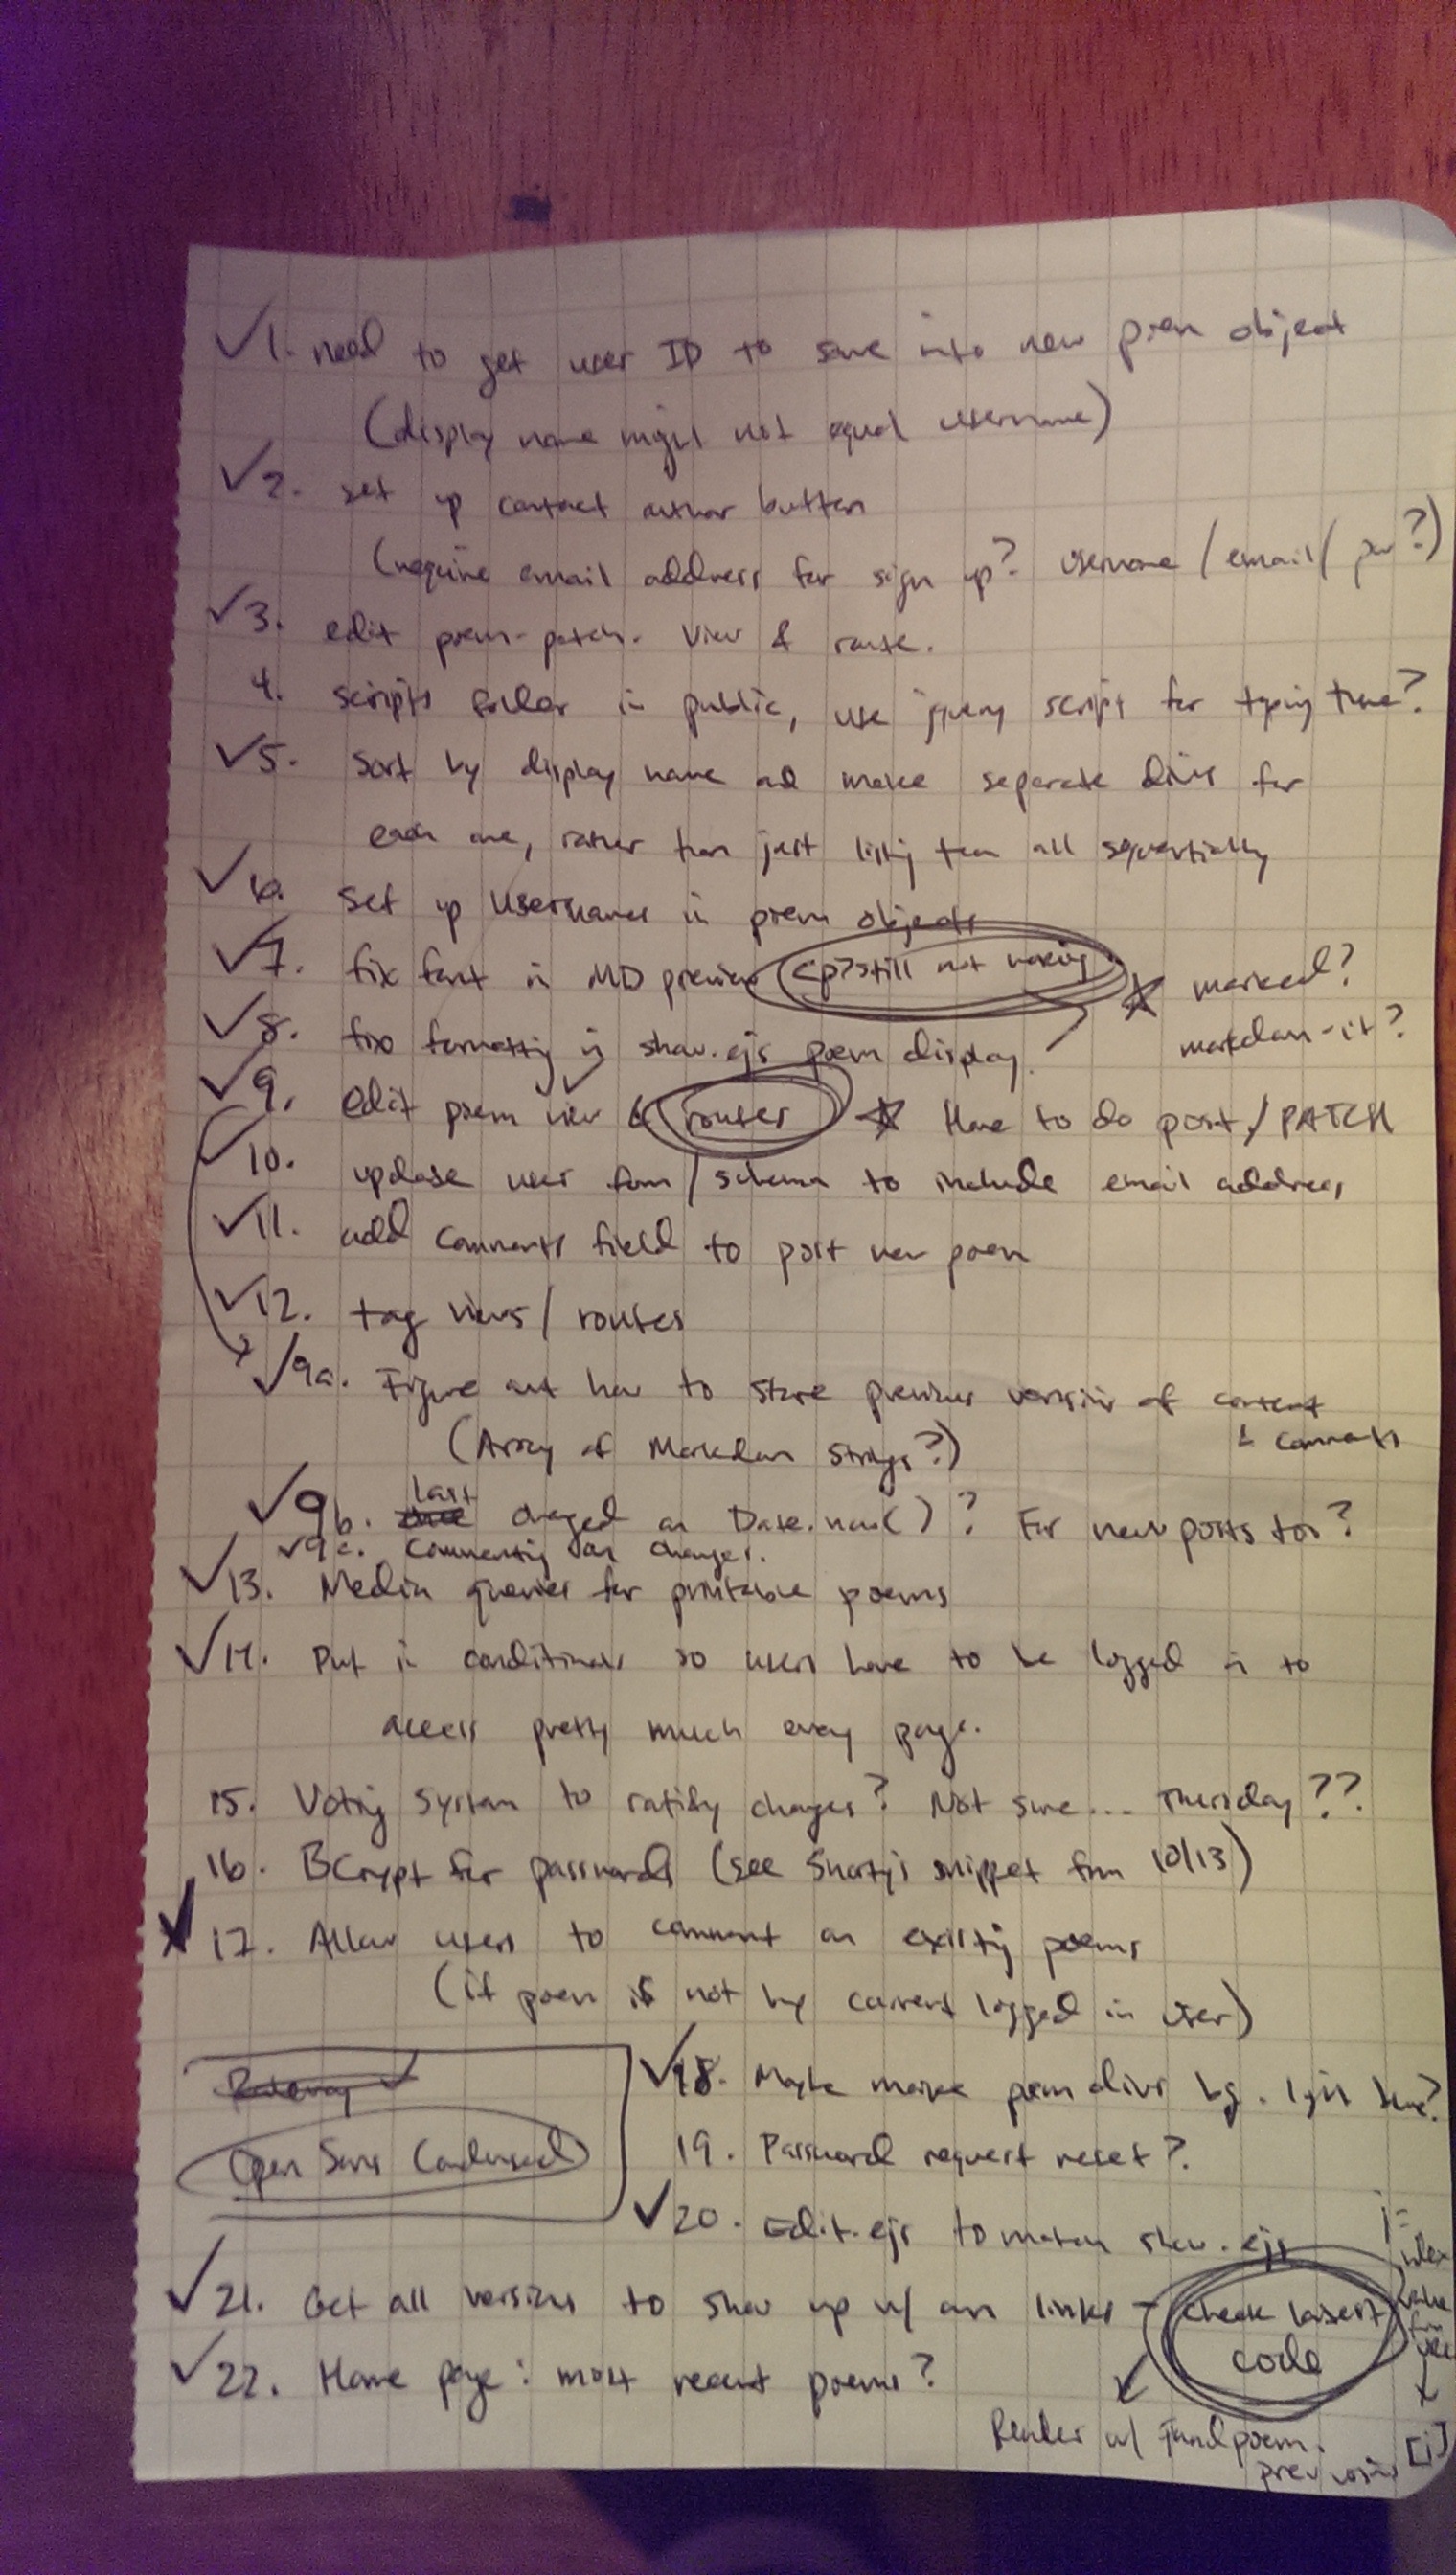 ✓1. need to get user ID to save into new poem object
(display name might not equal username)
✓2. set up contact author button
(require email address for sign up? Username / email / pw?)
✓3. edit poem - patch. View & route.
4. scripts folder in public, use jquery script for typing time?
✓5. Sort by display name and make separate divs for
each one, rather than just listing them all sequentially
✓6. Set up usernames in poem objects
✓7. fix font in MD preview <p>? still not working ☆ marked?
markdown-it?
✓8. fix formatting in show.ejs poem display.
✓9. edit poem view & routes ☆ Have to do post/PATCH
✓10. update user form / schema to include email address
✓11. add comments field to post new poem
✓12. tag views / routes
✓9a. Figure out how to store previous versions of content
& comments
(Array of Markdown Strings?)
✓9b. last changed as Date.now()? For new posts too?
✓9c. Commenting on changes.
✓13. Media queries for printable poems
✓14. Put in conditionals so users have to be logged in to
access pretty much every page.
15. Voting system to ratify changes? Not sure... Thursday??
16. BCrypt for passwords (see snippet from 10/13)
✓17. Allow users to comment on existing poems
(if poem is not by current logged in user)
Raleway
Open Sans Condensed
✓18. Maybe make poem divs bg. light blue?
19. Password request reset?
✓20. Edit.ejs to match show.ejs
✓21. Get all versions to show up w/ own links - check latest
code
j =
index
value
from
[j]
Render w/ foundpoem.
prev versions
✓22. Home page: most recent poems?